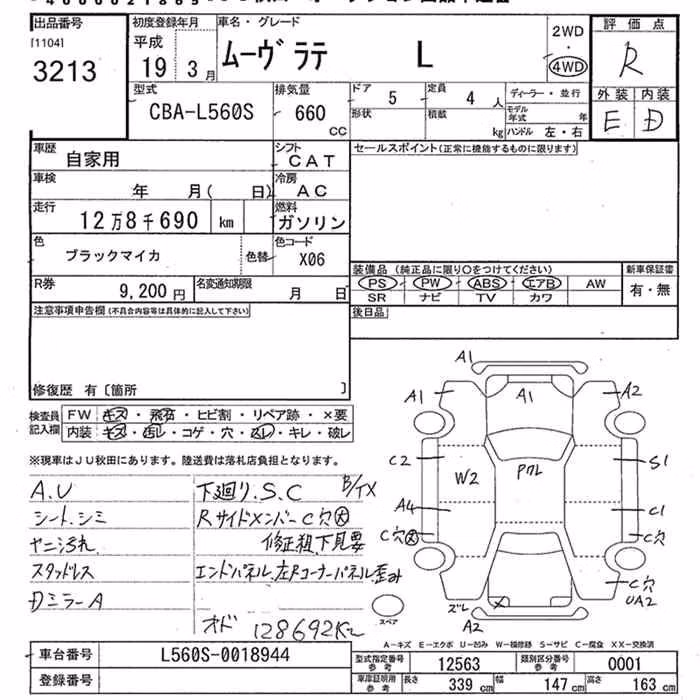 出品番号
[1104]
3213
初度登録年月
平成
19 3月
車名・グレード
ムーヴラテ L
2WD
・
4WD
評価点
R
外装 内装
E D
型式
CBA-L560S
排気量
660
CC
ドア 5
形状
定員 4 人
積載 kg
ディーラー・並行
モデル年式 年
ハンドル 左・右
車歴 自家用
シフト CAT
車検 年 月( 日)
冷房 AC
走行 12万8千690 km
燃料 ガソリン
色 ブラックマイカ
色替
色コード X06
R券 9,200円
名変通知期限 月 日
セールスポイント(正常に機能するものに限ります)
装備品 (純正品に限り○をつけてください)
新車保証書
PS PW ABS エアB AW
SR ナビ TV カワ
有・無
後日品
注意事項申告欄(不具合内容等は具体的に記入して下さい)
修復歴 有〔箇所 〕
検査員記入欄
FW キズ・飛石・ヒビ割・リペア跡・×要
内装 キズ・汚レ・コゲ・穴・スレ・キレ・破レ
※現車はJU秋田にあります。陸送費は落札店負担となります。
A.U
シート.シミ
ヤニ汚れ
スタッドレス
Dミラー A
下廻り.S.C
RサイドメンバーC穴大
修正粗.下見要
エンドパネル.左Rコーナーパネル.歪み
オド 128692K
A1
A1 A1 A2
C2 W2 S1
A4 C1
C穴大 C穴
C穴
UA2
ズレ
A2
スペア
A-キズ E-エクボ U-凹み W-補修跡 S-サビ C-腐食 XX-交換済
車台番号 L560S-0018944
登録番号
型式指定番号 参考 12563
類別区分番号 参考 0001
車庫証明用 参考 長さ 339 cm 幅 147 cm 高さ 163 cm